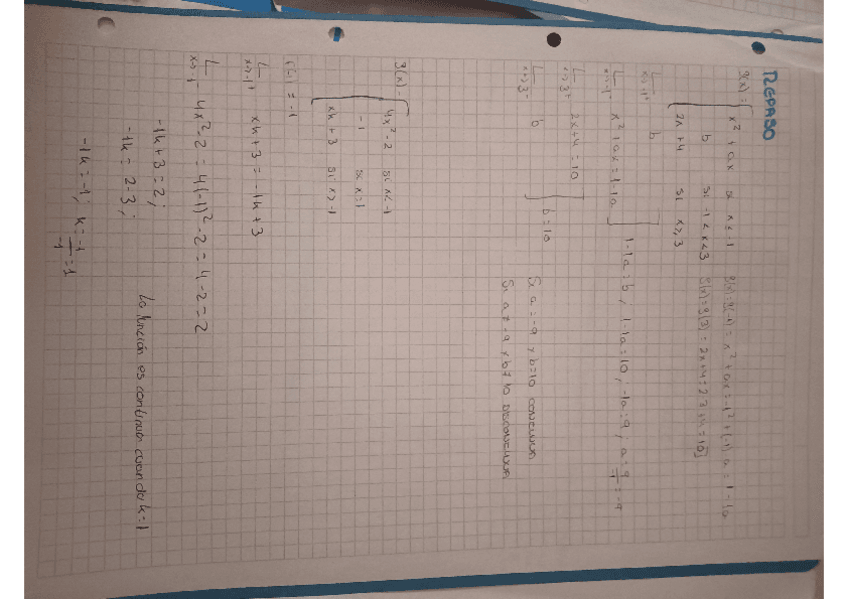 REPASO
g(x) = { x² + ax si x ≤ -1
b si -1 < x < 3
2x + 4 si x ≥ 3
g(x) = g(-1) = x² + ax = -1² + (-1) a = 1 - 1a
g(x) = g(3) = 2x + 4 = 2·3 + 4 = 10
L x→-1⁺ b
L x→-1⁻ x² + ax = 1 - 1a
1 - 1a = b ; 1 - 1a = 10 ; -1a = 9 ; a = 9/-1 = -9
L x→3⁺ 2x + 4 = 10
L x→3⁻ b
b = 10
Si a = -9 y b = 10 continua
Si a ≠ -9 y b ≠ 10 discontinua
g(x) = { 4x² - 2 si x < -1
-1 si x = 1
xk + 3 si x > -1
f(-1) = -1
L x→-1⁺ xk + 3 = -1k + 3
L x→-1⁻ 4x² - 2 = 4(-1)² - 2 = 4 - 2 = 2
-1k + 3 = 2 ;
-1k = 2 - 3 ;
-1k = -1 ; k = -1/-1 = 1
La función es continua cuando k = 1